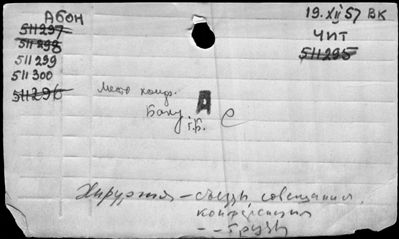 АБОН
511297
511298
511299
511300
511296
19.XII 57 ВК
ЧИТ
511295
Место конф.
А
Баку
С
Хирургия – съезды, совещания,
конференции
- -